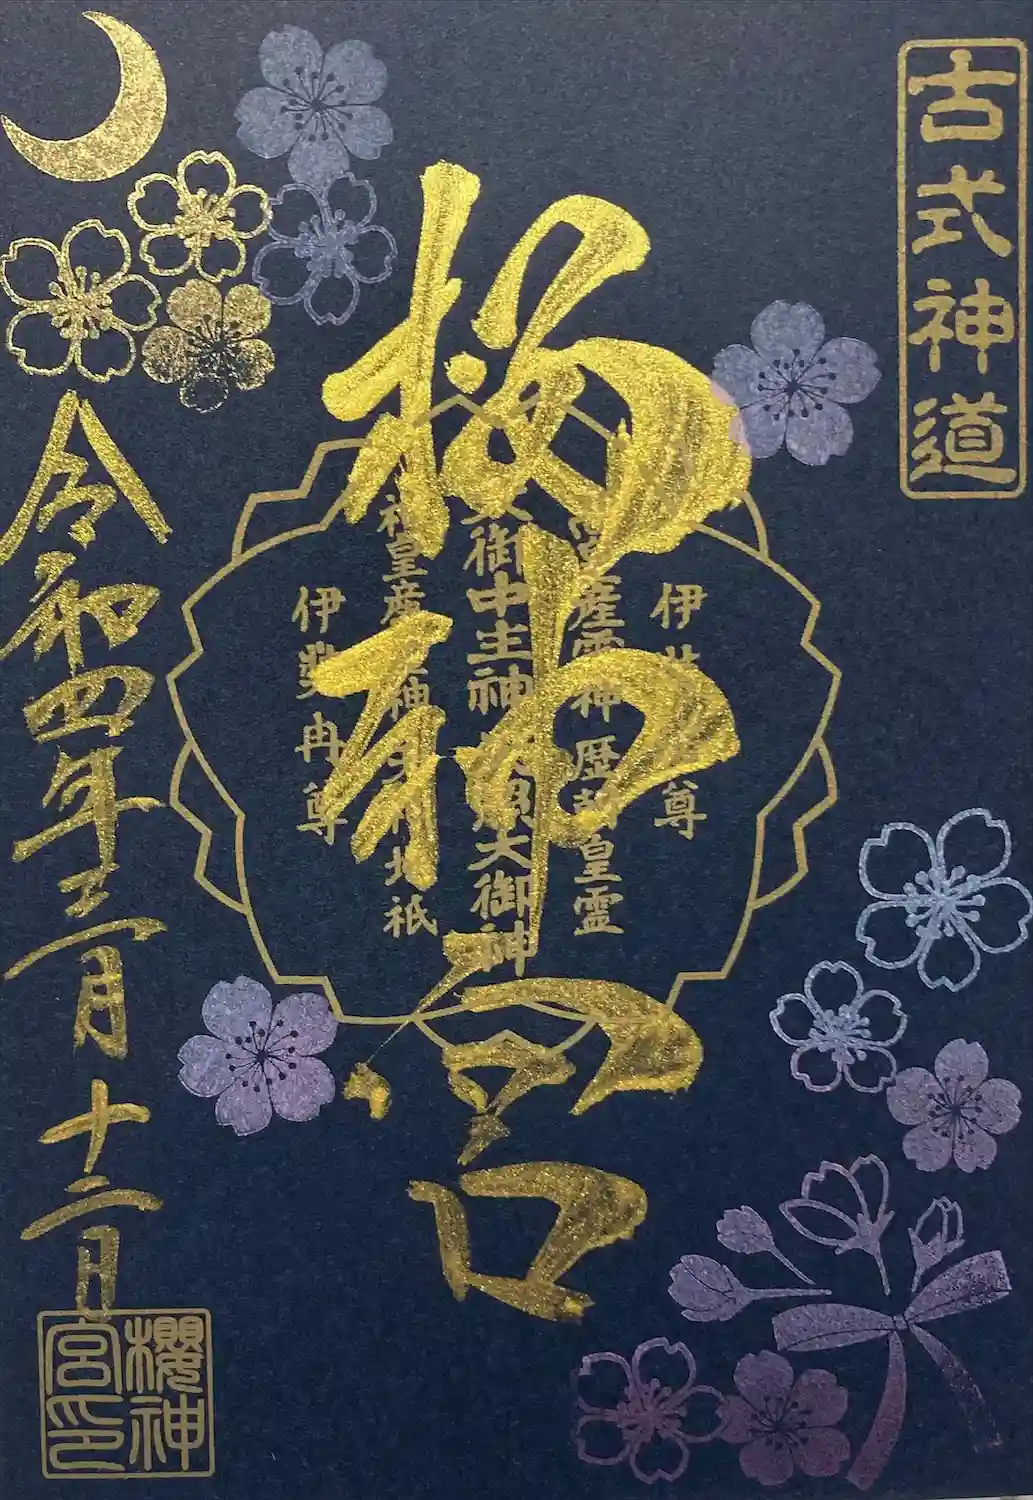 古式神道
桜神宮
伊弉諾尊
高皇産霊神 歴朝皇霊
天御中主神 天照大御神
神皇産霊神 天神地祇
伊弉冉尊
令和四年三月十二日
櫻神宮印